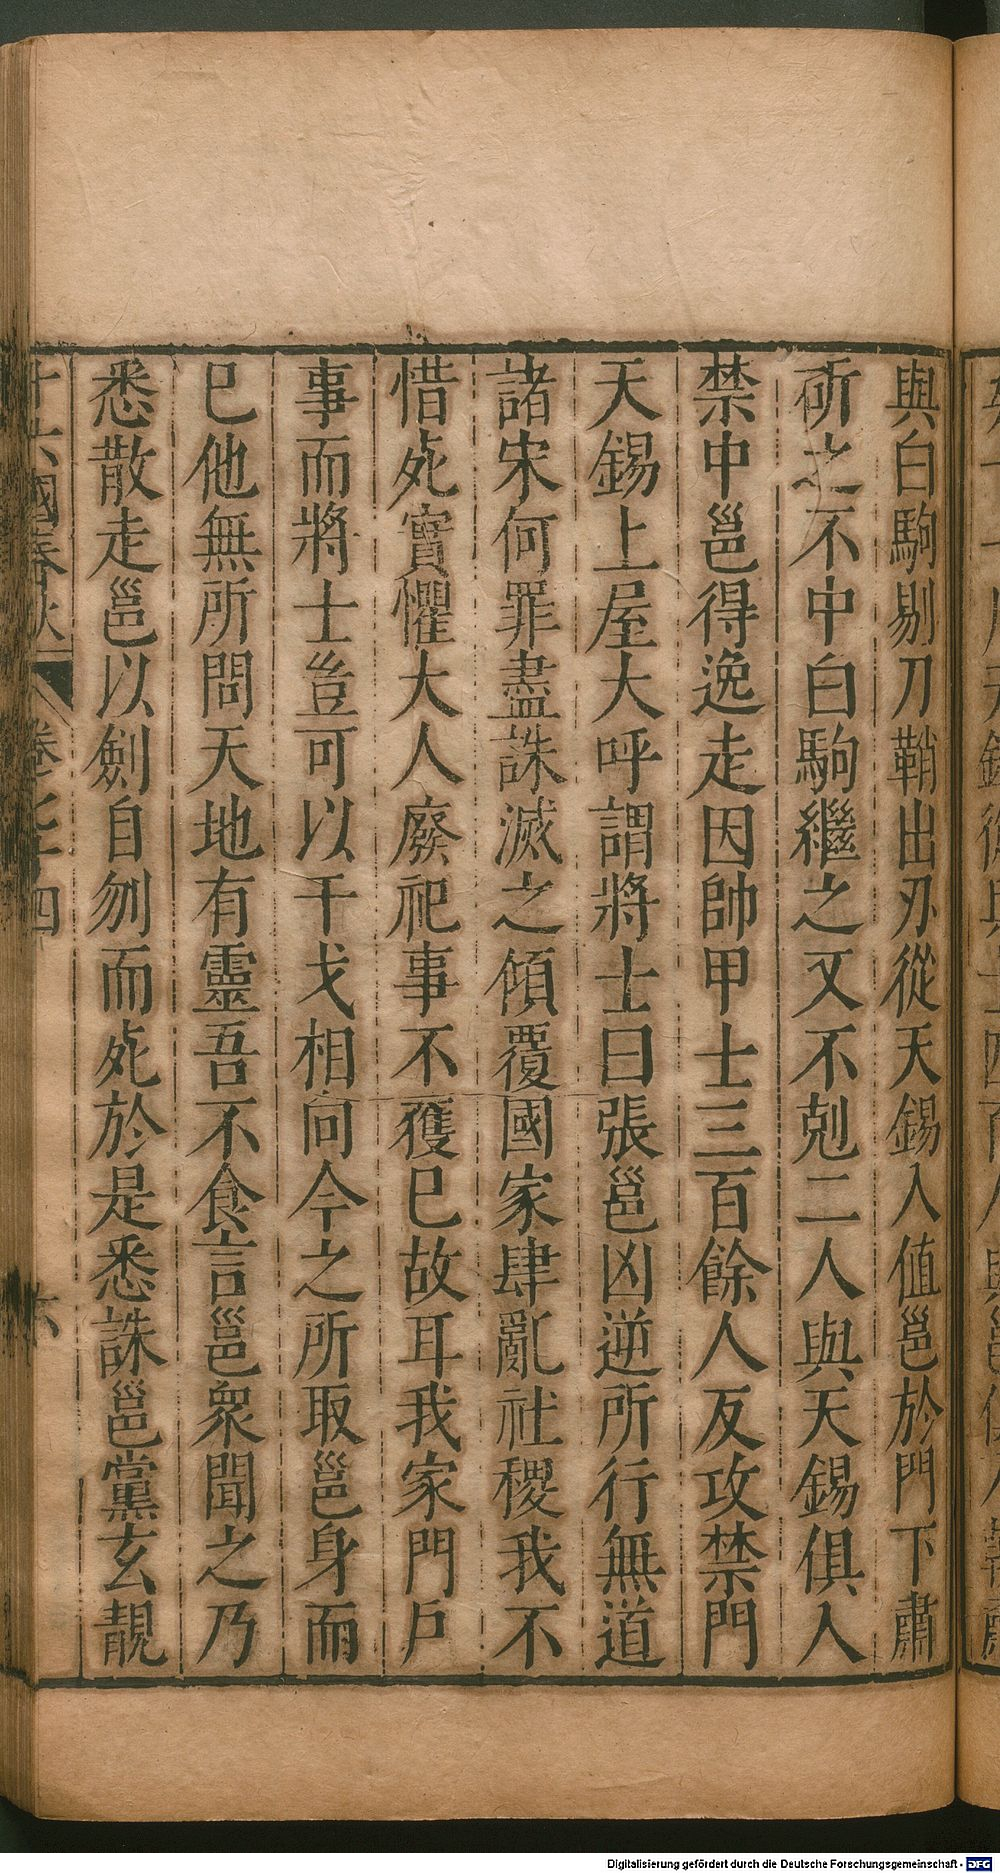 與白駒剔刀鞘出刃從天錫入值邕於門下肅
斫之不中白駒繼之又不剋二人與天錫俱入
禁中邕得逸走因帥甲士三百餘人反攻禁門
天錫上屋大呼謂將士曰張邕凶逆所行無道
諸宋何罪盡誅滅之傾覆國家肆亂社稷我不
惜死實懼大人廢祀事不獲已故耳我家門戶
事而將士豈可以干戈相向今之所取邕身而
已他無所問天地有靈吾不食言邕衆聞之乃
悉散走邕以劍自刎而死於是悉誅邕黨玄靚
十六國春秋 卷七十四 六
Digitalisierung gefördert durch die Deutsche Forschungsgemeinschaft - DFG